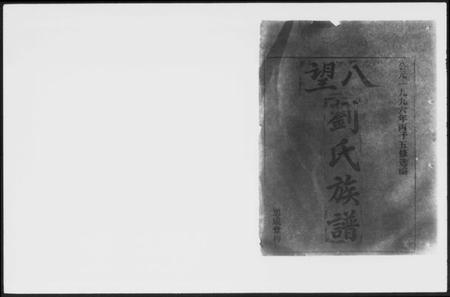 公元一九九六年丙子五修续编
八望
劉氏族譜